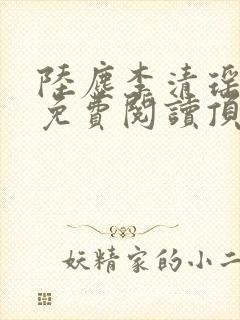 陸塵李清瑶
免費閱讀頂
妖精家的小二